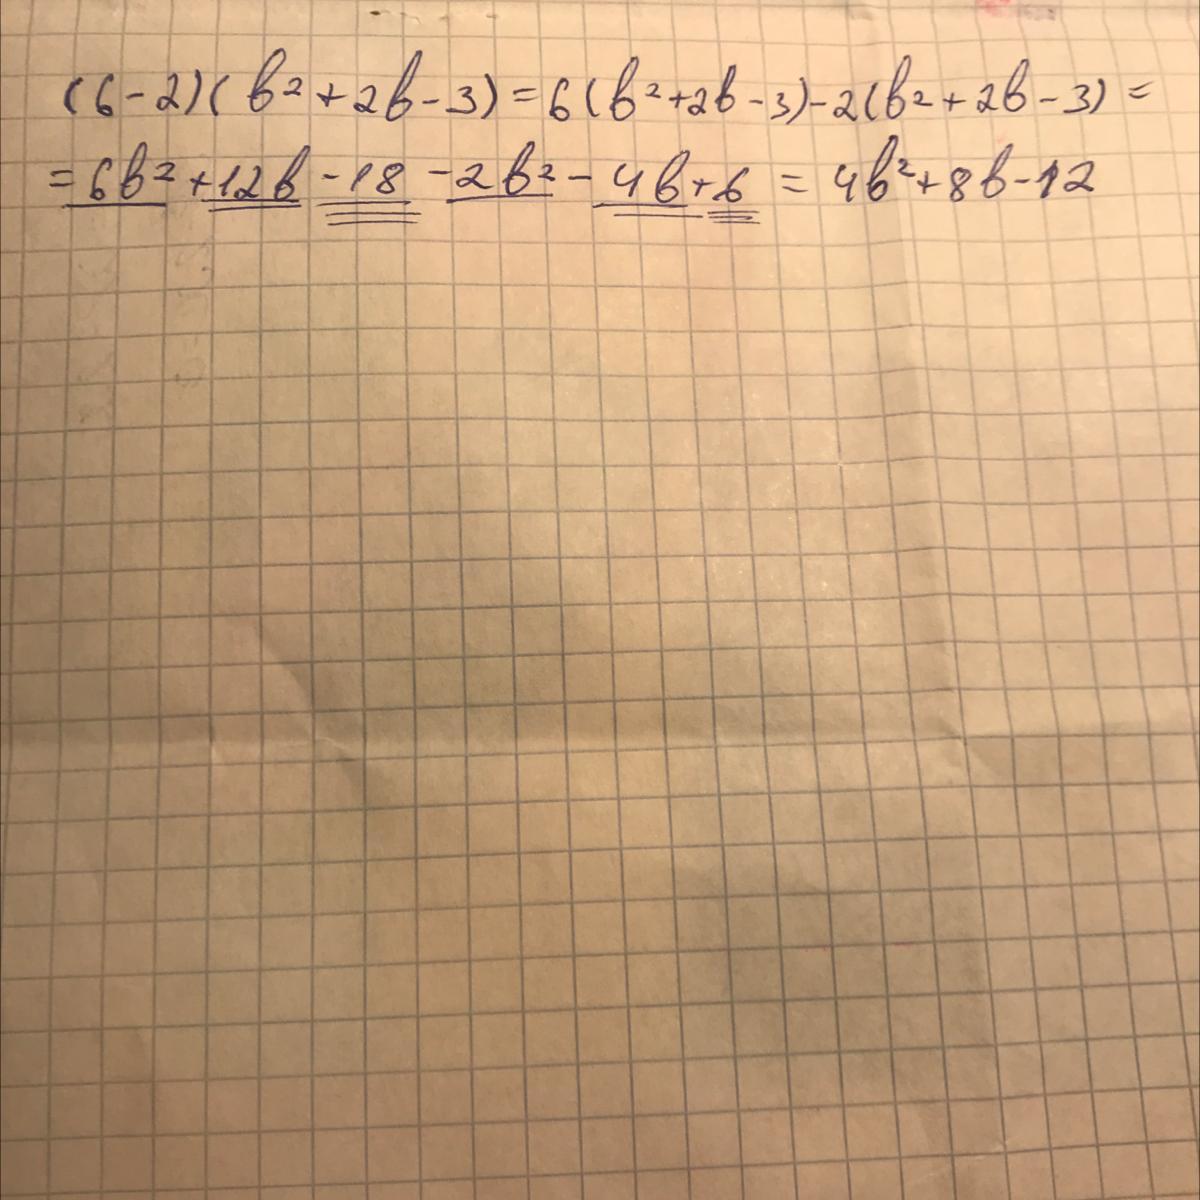 (6-2)(b²+2b-3)=6(b²+2b-3)-2(b²+2b-3)=
=6b²+12b-18-2b²-4b+6=4b²+8b-12